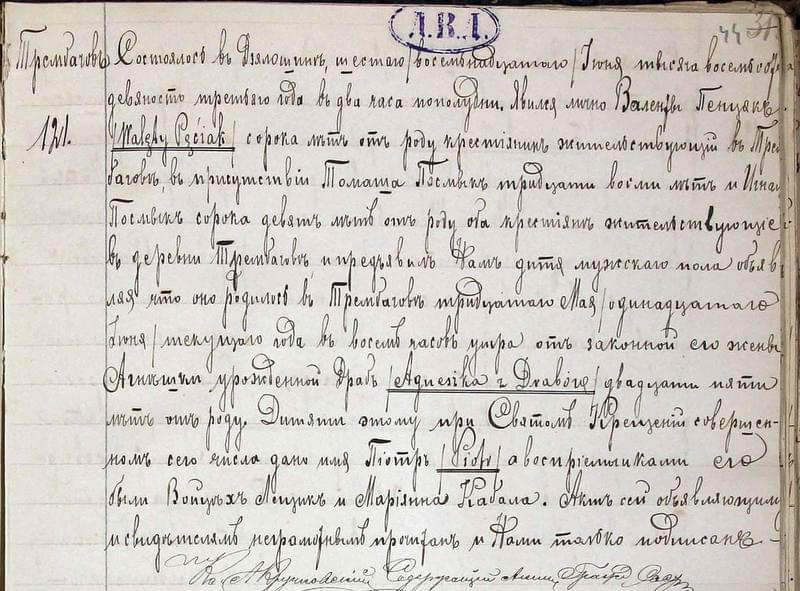 Л.В.Д.
44 31.
Трембачовъ
121.
Состоялось въ Дзялошинѣ, шестаго /восемнадцатаго/ Іюня тысяча восемьсотъ
девяность третьяго года въ два часа пополудни. Явился лично Валенты Пенцякъ
/Walęty Pęciak/ сорока лѣтъ отъ роду крестіянинъ жительствующій въ Трем
бачовѣ, въ присутствіи Томаша Посмыкъ тридцати восми лѣтъ и Игнац
Посмыкъ сорока девять лѣтъ отъ роду оба крестіянѣ жительствующіе
въ деревни Трембачовѣ и предъявилъ Намъ дитя мужскаго пола объяв
ляя что оно родилось въ Трембачовѣ тридцатаго Мая /одинадцатаго
Іюня/ текущаго года въ восемь часовъ утра отъ законной его жены
Агнѣшки урожденной Драбъ /Agnesika z Drabów/ двадцати пяти
лѣтъ отъ роду. Дитяти этому при Святомъ Крещеніи совершен-
номъ сего числа дано имя Піотръ /Piotr/ а воспріемниками его
были Войцѣхъ Лещикъ и Маріянна Кабала. Актъ сей объявляющиму
и свидѣтелямъ неграмотнымъ прочтанъ и Нами только подписанъ.-
Содержащій Акты Гражд.